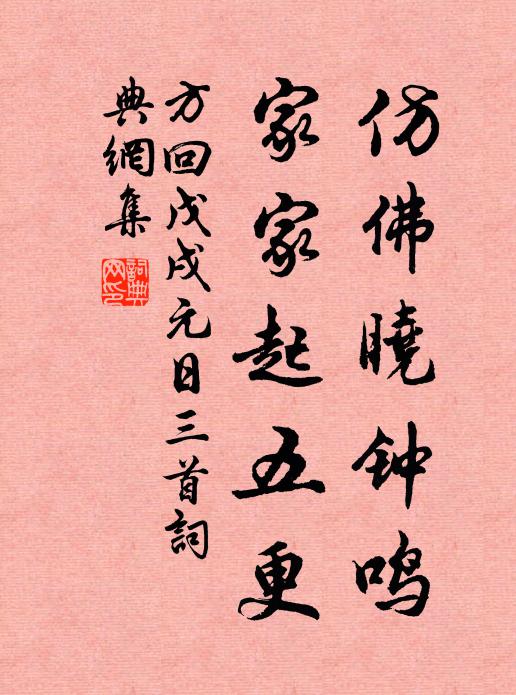 仿佛曉钟鸣
家家起五更
方回戊戌元日三首詞
典網集
詞典
网印